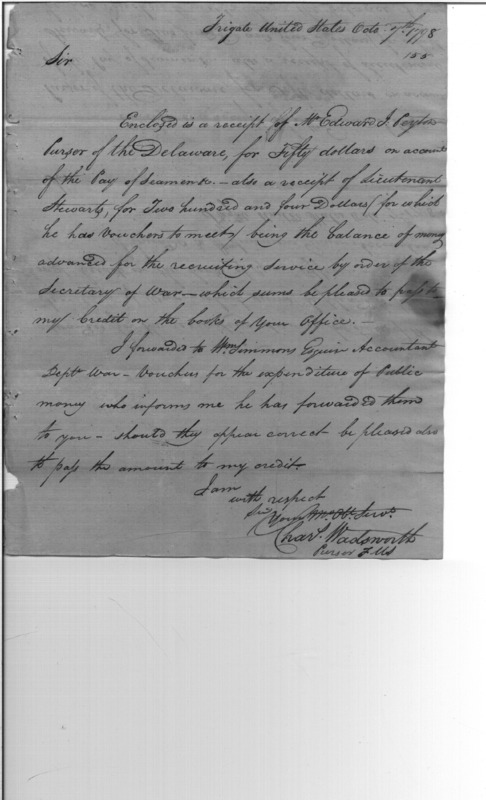 Frigate United States Octo. 7th. 1798
155
Sir
Enclosed is a receipt of Mr Edward J. Peyton
Pursor of the Delaware, for Fifty dollars on account
of the Pay of Seamen &c. - also a receipt of Lieutenant
Stewarts, for Two hundred and four Dollars / for which
he has Vouchers to meet / being the balance of money
advanced for the recruiting service by order of the
Secretary of War - which sums be pleased to pass to
my Credit on the books of Your Office. -
I forwarded to Wm Simmons Esquir Accountant
Dept. War - Vouchers for the expenditure of Public
money who informs me he has forwarded them
to you - should they appear correct be pleased also
to pass the amount to my credit.
I am
with respect
Sir Your Mo. Ob. Servt.
Chas. Wadsworth
Pursor F. US